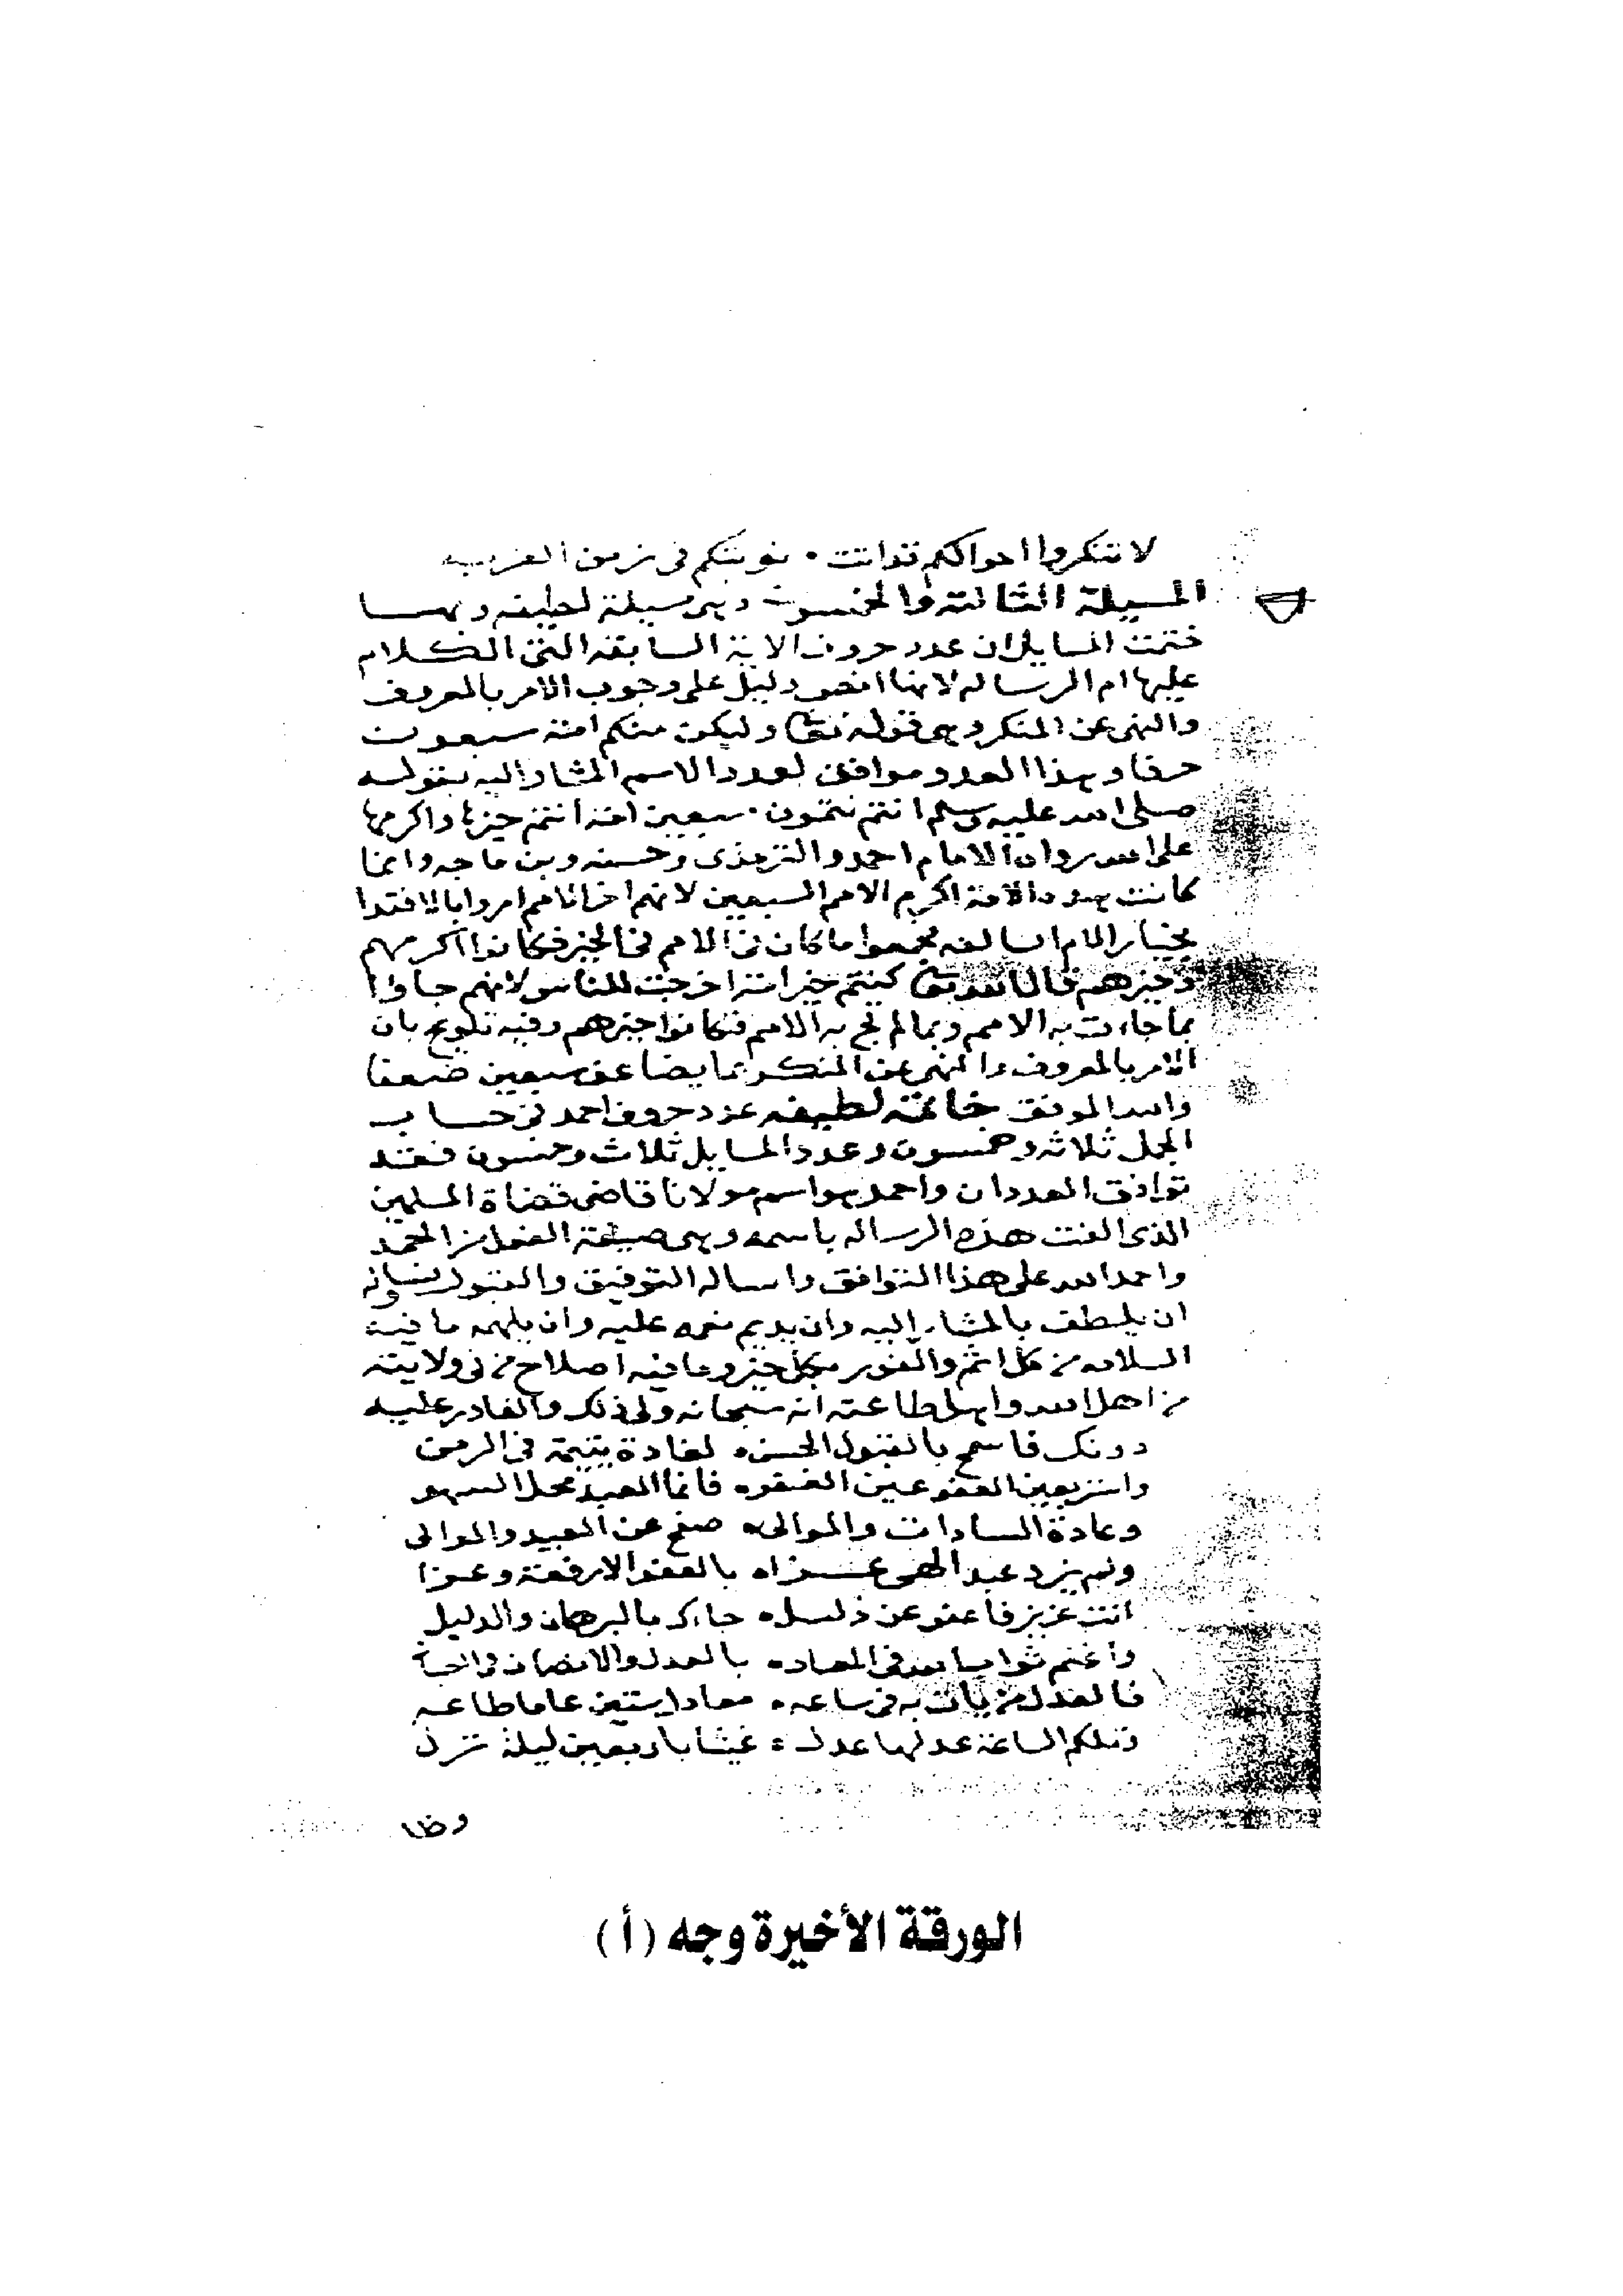 لا تنكروا احوالكم قد اتت • نوبتكم في زمن الغربه
المسيلة الثالثة والخمسون وهي مسيلة لطيفه وبهـا
ختمت المسايل ان عدد حروف الاية السابقه التي الكلام
عليها ام الرساله لانها انص دليل على وجوب الامر بالمعروف
والنهي عن المنكر وهي قوله تعا ولتكن منكم امة سبعون
حرفا وهذا العدد موافق لعدد الاسم المشار اليه بقوله
صلى الله عليه وسلم انتم تتمون سبعين امة انتم خيرها واكرمها
على الله رواه الامام احمد والترمذي وحسنه وبن ماجه وانما
كانت هذه الامة اكرم الامم السبعين لانهم اخر الامم امروا بالاقتدا
بخيار الامم السالفه فجمعوا ما كان في الامم في الخير فكانوا اكرمهم
وخيرهم قال الله تعا كنتم خير امة اخرجت للناس لانهم جاوا
بما جاءت به الامم وبما لم تجئ به الامم فكانوا خيرهم وفيه تلويح بان
الامر بالمعروف والنهي عن المنكر مما يضاعف سبعين ضعفا
والله الموفق خاتمة لطيفه عدد حروف احمد في حساب
الجمل ثلاثه وخمسون وعدد المسايل ثلاث وخمسون فقد
توافق العددان واحمد هو اسم مولانا قاضي قضاة المسلمين
الذي الفت هذه الرساله باسمه وهي صيغة الفعل من الحمد
واحمد الله على هذا التوافق واساله التوفيق والقبول
ان يلطف بالمشار اليه وان يديم نعمه عليه وان يلهمه ما فيه
السلامه من كل اثم والفوز بكل خير وما فيه اصلاح من في ولايته
من اهل الله واهل طاعته انه سبحانه ولي ذلك والقادر عليه
دونك فاسمح بالقبول الحسن • لغادة يتيمة في الزمن
واستر بعين العفو عين الفقره فانما العبد محل السهو
وعادة السادات والموالي • صفح عن العبيد والموالي
ولم يزد عبد الهي عزا • بالعفو الا رفعة وعزا
انت عزيز فاعفو عن ذليل • جاءك بالبرهان والدليل
واغنم ثوابا في المعاد • بالعدل والانصاف في
فالعدل من يات به في ساعه • معادل ستين عاما طاعه
وتلكم الساعة عدلها عدل • غيثا باربعين ليلة نزل
وظا
الورقة الأخيرة وجه (أ)